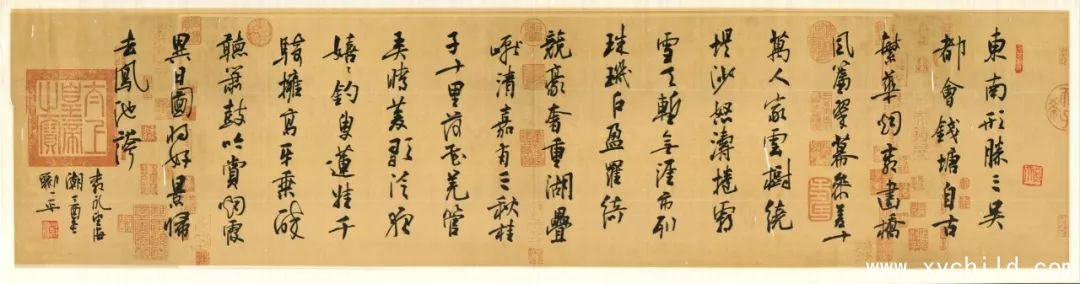 東南形勝三吳
都會錢塘自古
繁華烟柳畫橋
風簾翠幕參差十
萬人家雲樹繞
堤沙怒濤捲霜
雪天塹無涯市列
珠璣戶盈羅綺
競豪奢重湖疊
巘清嘉有三秋桂
子十里荷花羌管
弄晴菱歌泛夜
嬉〻釣叟蓮娃千
騎擁高牙乘醉
聽簫鼓吟賞烟霞
異日圖將好景歸
去鳳池誇
永望海
潮丁酉
太上皇帝之寶
www.xychild.com